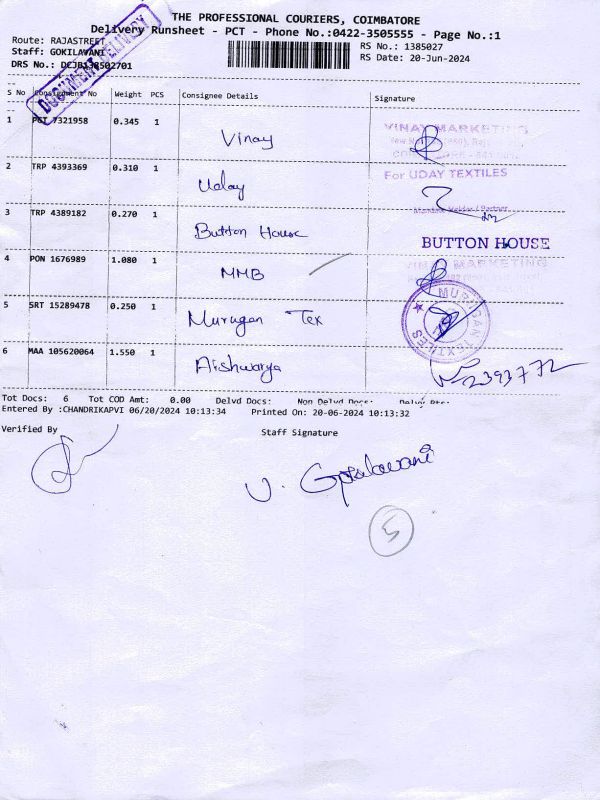 THE PROFESSIONAL COURIERS, COIMBATORE
Delivery Runsheet - PCT - Phone No.:0422-3505555 - Page No.:1
Route: RAJASTREET
RS No.: 1385027
Staff: GOKILAVANI
RS Date: 20-Jun-2024
DRS No.: DCJB138502701
DOCUMENT DELIVERY
S No Consignment No Weight PCS Consignee Details Signature
1 PGT 7321958 0.345 1 Vinay VINAY MARKETING
2 TRP 4393369 0.310 1 Uday For UDAY TEXTILES
/ Partner
3 TRP 4389182 0.270 1 Button House BUTTON HOUSE
4 PON 1676989 1.080 1 MMB VINAY MARKETING
5 SRT 15289478 0.250 1 Murugan Tex MURUGAN TEXTILES
6 MAA 105620064 1.550 1 Aishwarya 2393772
Tot Docs: 6 Tot COD Amt: 0.00 Delvd Docs: Non Delvd Docs: Delvd
Entered By :CHANDRIKAPVI 06/20/2024 10:13:34 Printed On: 20-06-2024 10:13:32
Verified By Staff Signature
V. Gokilavani
5